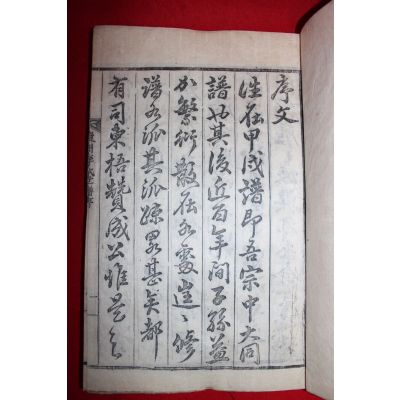 序文
往在甲戌譜即吾宗中大同
譜也其後近百年間子孫益
加繁衍散在各處往〻修
譜各派其派疎畧甚矣都
有司東梧贊成公惟是之